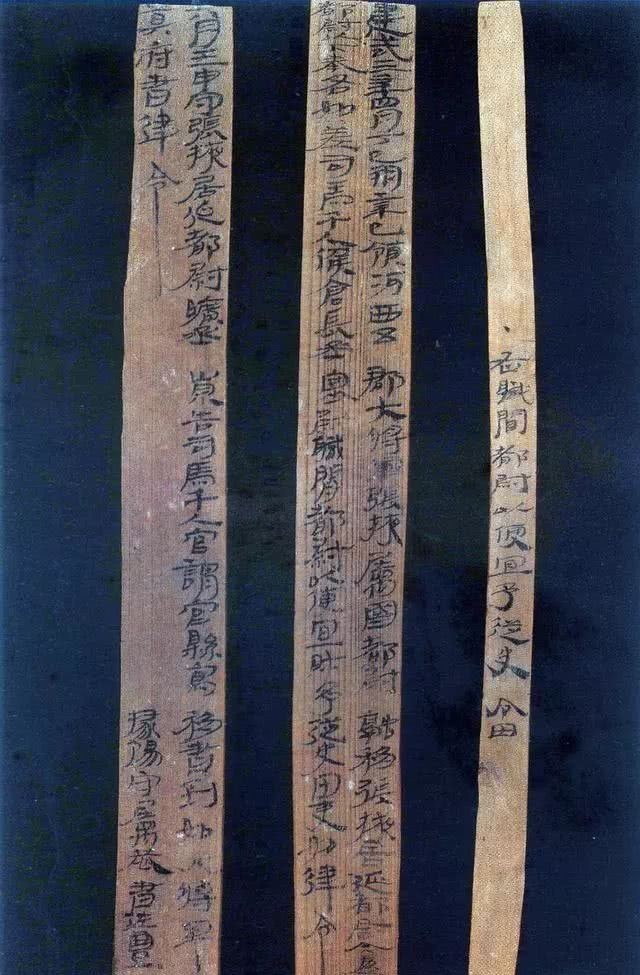 ·右職間都尉以便宜予從史令田
建武三年四月丁巳朔辛巳領河西五郡大將軍張掖屬國都尉融移張掖居延都尉今為
都尉以下奉各如差司馬千人候倉長丞塞尉職間都尉以便宜財予從史田吏如律令
月壬申守張掖居延都尉曠丞崇告司馬千人官謂官縣寫移書到如大將軍
莫府書律令 掾陽守屬恭書佐豐